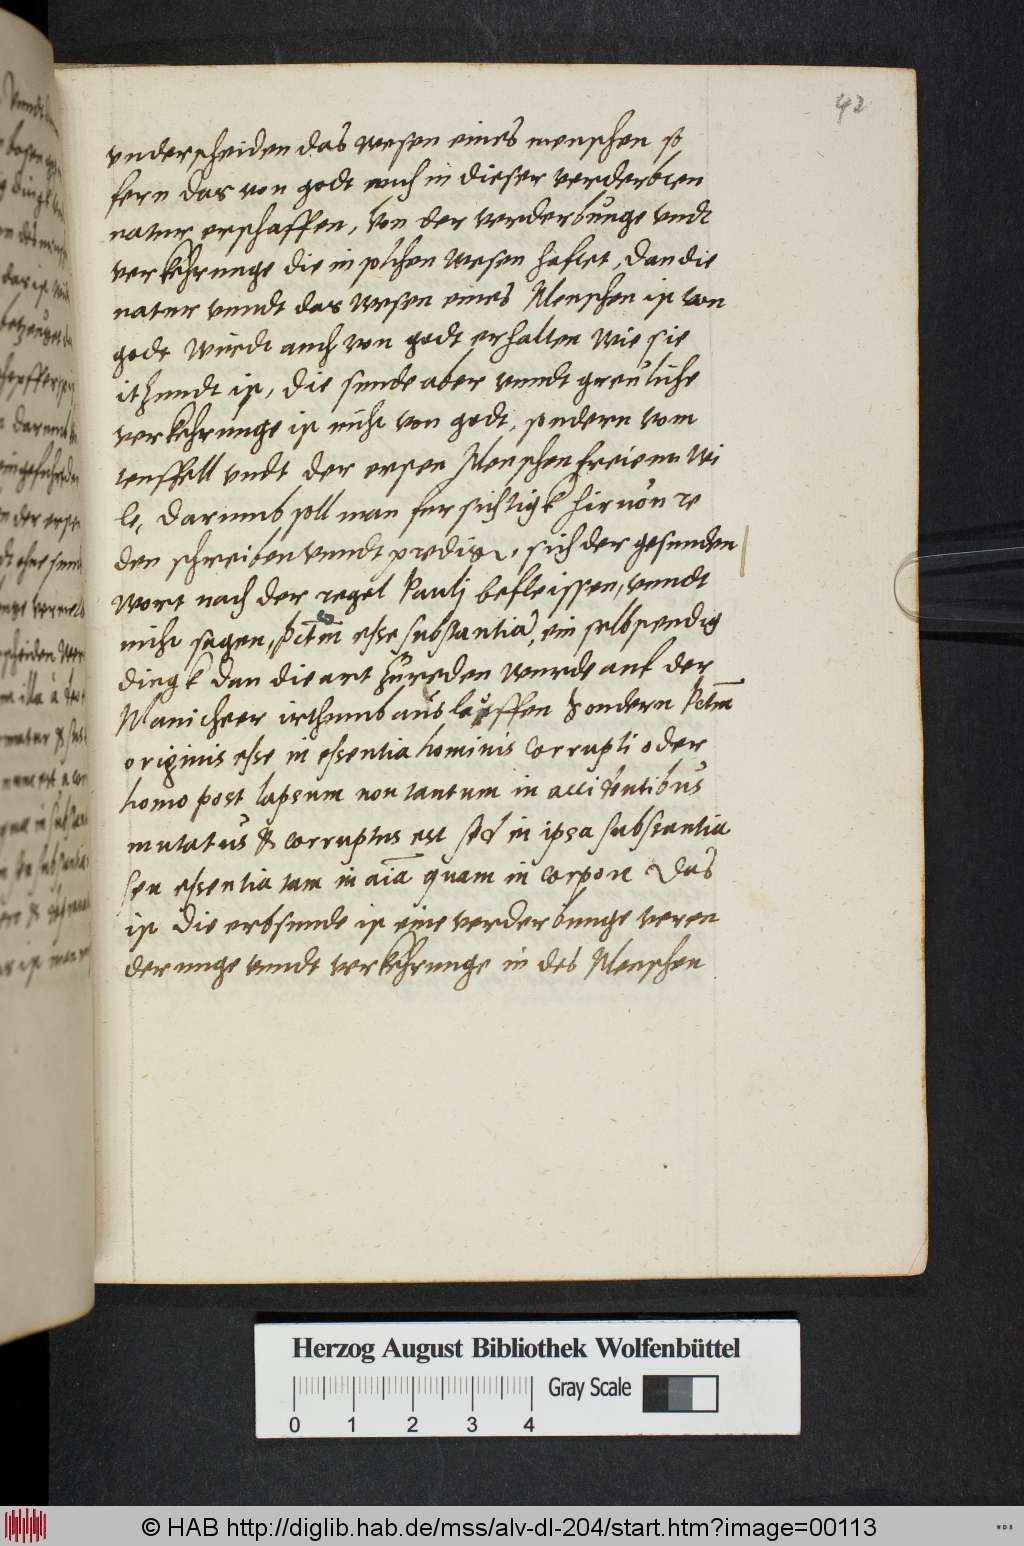 42
vnderscheiden das wesen eines menschen so
fern das von godt auch in dieser verderbten
natur erschaffen, von der verderbunge vndt
verkehrunge die in solchen wesen hafftet, dan die
natur vnndt das wesen eines Menschen ist von
godt wurdt auch von godt erhalten wie sie
itzundt ist, die sunde aber vnndt greuliche
verkehrunge ist nicht von godt, sondern vom
teuffell vndt der ersten Menschen freienn wi
le, darumb soll man fursichtigk hiruon re
den schreiben vnndt predigen, sich der gesunden
wort nach der regel Paulj befleissen, vnndt
nicht sagen, pctm esse substantia, ein selbstendig
dingk dan die art zureden wurde auf der
Manicheer irthumb auslauffen sondern Pctm
originis esse in essentia hominis corrupti oder
homo post lapsum non tantum in accidentibus
mutatus & corruptus est sed in ipsa substantia
seu essentia tam in aia quam in corpore Das
ist die erbsunde ist eine verderbunge veren
derunge vnndt verkehrunge in des Menschen
Herzog August Bibliothek Wolfenbüttel
0 1 2 3 4 Gray Scale
© HAB http://diglib.hab.de/mss/alv-dl-204/start.htm?image=00113